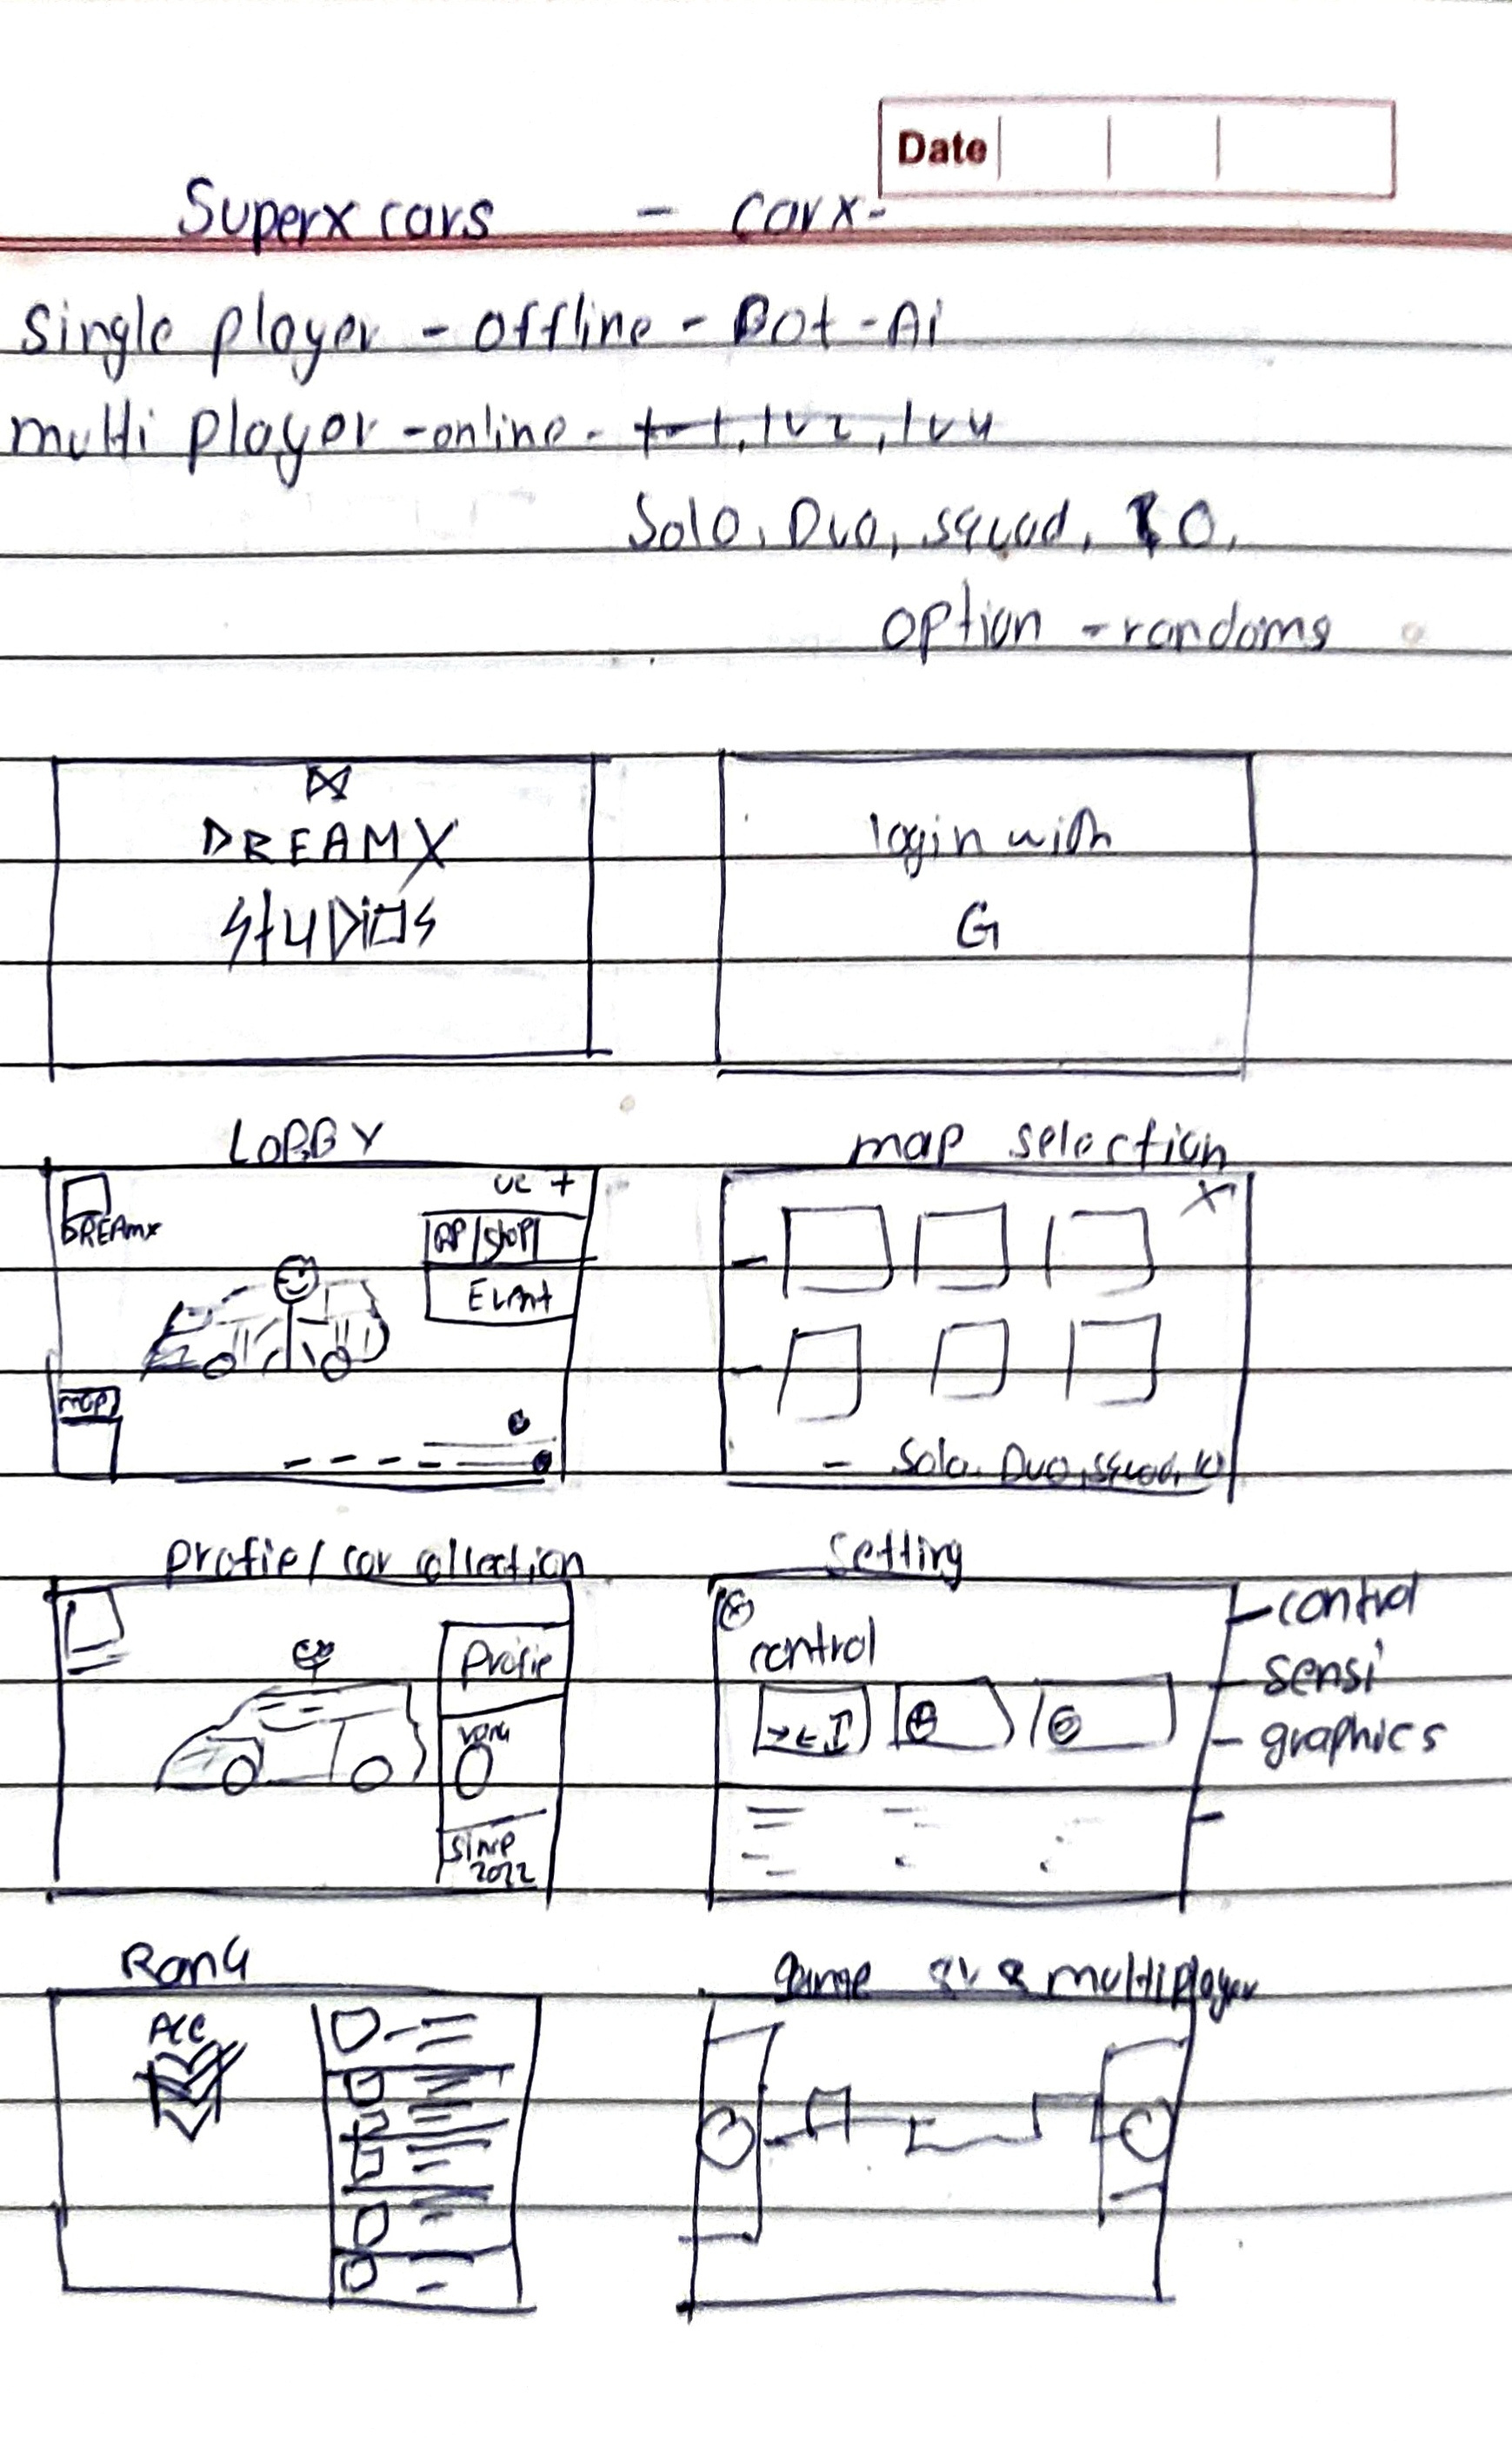 Date
Superx cars - carx-
Single player - offline - Bot - Ai
multi player - online - 1-1, 1v2, 1v4
Solo, Duo, squad, 10,
option - randoms
DREAMX
StUDiOS
login with
G
LOBBY
UC +
DREAMX
RP shop
Event
map
map selection
X
- Solo, Duo, squad, 10
Profie / car collection
Profie
rank
sinse
2022
Setting
control
control
sensi
- graphics
Rank
ACE
game multiplayer